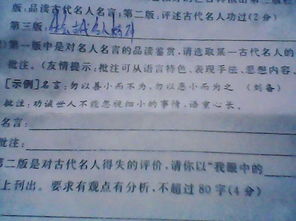 版:品读古代名人名言;第二版:评述古代名人功过(2分)
第三版:
第一版中是对名人名言的品读鉴赏,请选取某一古代名人的
批注。(友情提示:批注可从语言特色、表现手法、思想内容
[示例]名言:勿以善小而不为,勿以恶小而为之 (刘备)
批注:功诫世人不能忽视细小的事情,语重心长。
名言:
批注:
第二版是对古代名人得失的评价,请你以“我眼中的
上刊出。要求有观点有分析,不超过80字(4分)